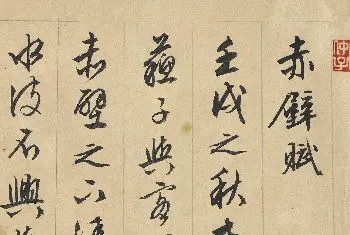 赤壁賦
壬戌之秋
蘇子與客
赤壁之下
水波不興